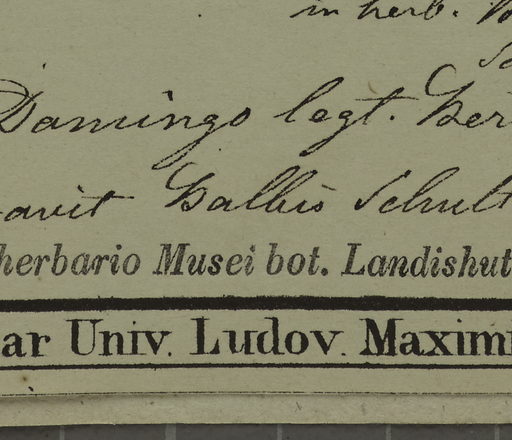 in herb.
Domingo legt. Ber
avit Balbis Schult
herbario Musei bot. Landishut
ar Univ. Ludov. Maxim